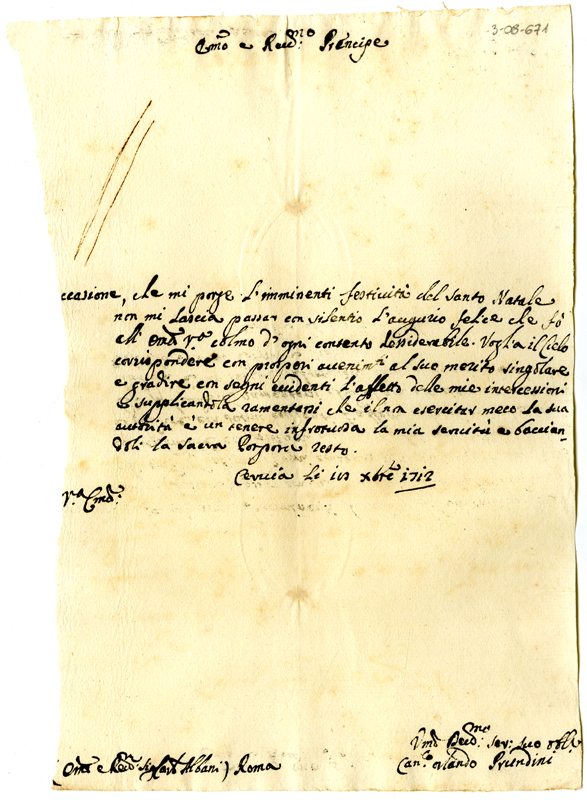 3-08-671
Emo e Reud:mo Prencipe
ccasione, che mi porge l'imminenti festiuità del Santo Natale
non mi lascia passar con silentio l'augurio felice che fò
all' Emza Vra colmo d'ogni contento desiderabile. Voglia il Cielo
corrispondere con prosperi auenimti al suo merito singolare
e gradire con segni euidenti l'affetto delle mie intercessioni
E supplicandola ramentarsi che il non esercitar meco la sua
autorità è un tenere infrotuosa la mia seruitù e baccian-
doli la Sacra Porpora resto.
Ceruia li xbre 1712
Va Emza:
Vmo Deuo:mo ser: suo obblo
Cano Orlando
Emo e Reud: Sig Card Albani) Roma